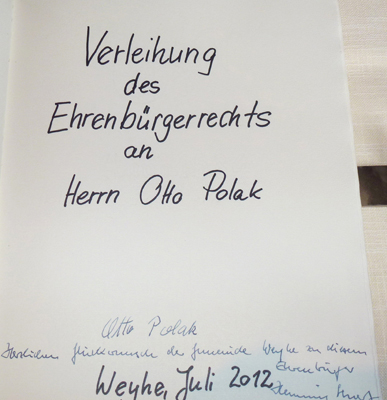 Verleihung
des
Ehrenbürgerrechts
an
Herrn Otto Polak
Otto Polak
Herzlichen Glückwunsch der Gemeinde Weyhe zu diesem
Ehrenbürger
Weyhe, Juli 2012